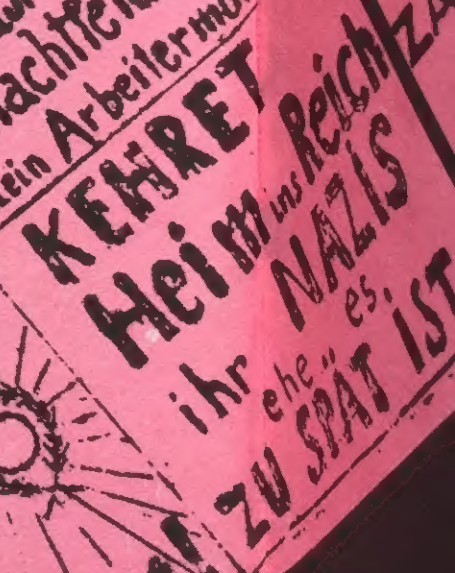 ein Arbeitermo
KEHRET
Heim ins Reich
ihr NAZIS
ehe es
ZU SPÄT IST
ZA